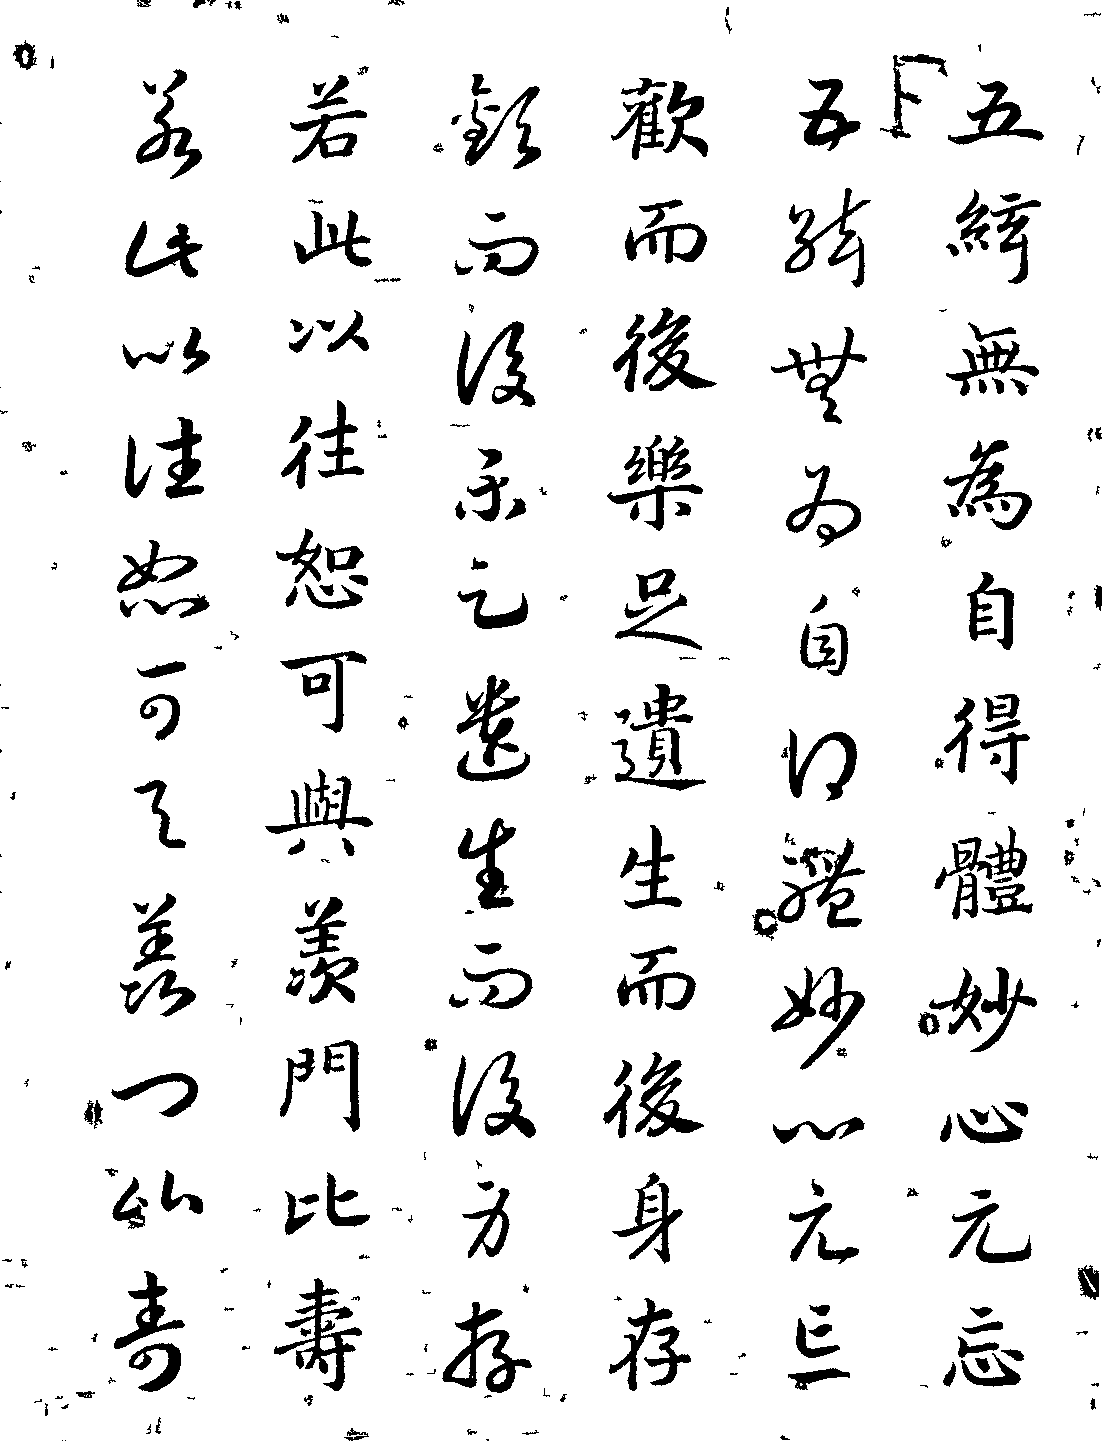 五絃無為自得體妙心元忘
五絃無為自得體妙心元忘
歡而後樂足遺生而後身存
歡而後樂足遺生而後身存
若此以往恕可與羨門比壽
若此以往恕可與羨門比壽